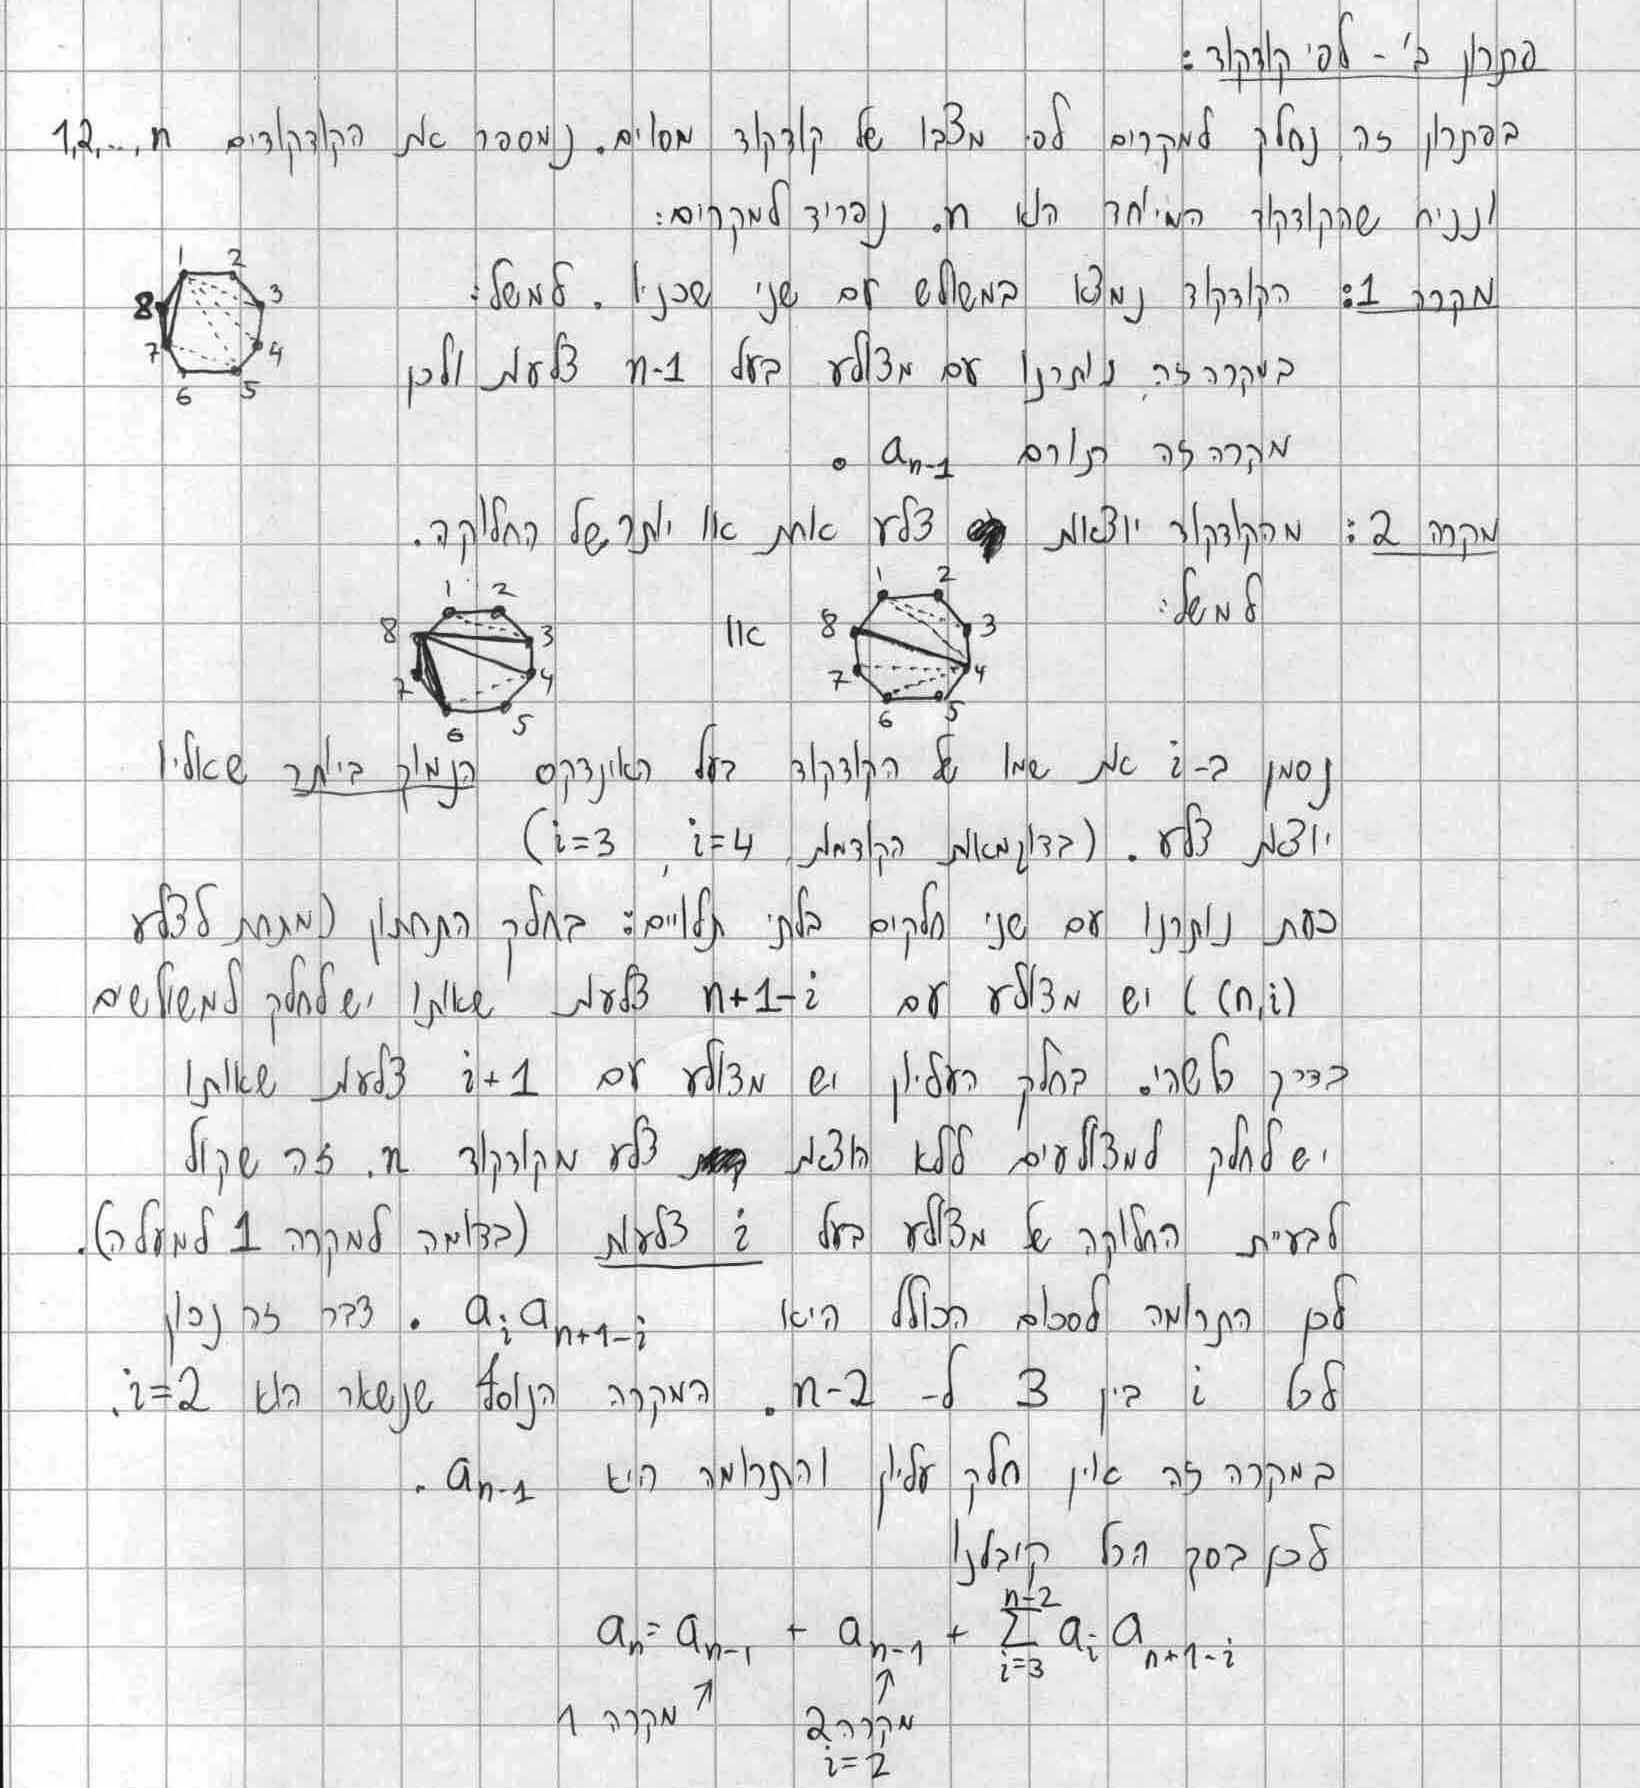 פתרון ב' - לפי קודקוד:
בפתרון זה נחלק למקרים לפי מצבו של קודקוד מסוים. נמספר את הקודקודים 1,2,...,n
ונניח שהקודקוד המיוחד הוא n. נפריד למקרים:
מקרה 1: הקודקוד נמצא במשולש עם שני שכניו. למשל:
1 2 3 4 5 6 7 8
במקרה זה נותרנו עם מצולע בעל n-1 צלעות ולכן
מקרה זה תורם a_{n-1}.
מקרה 2: מהקודקוד יוצאות צלע אחת או יותר של החלוקה.
למשל:
1 2 3 4 5 6 7 8 או 1 2 3 4 5 6 7 8
נסמן ב-i את שמו של הקודקוד בעל האינדקס הנמוך ביותר שאליו
יוצאת צלע. (בדוגמאות הקודמות i=4, i=3)
כעת נותרנו עם שני חלקים בלתי תלויים: בחלק התחתון (מתחת לצלע
(n,i)) יש מצולע עם n+1-i צלעות שאותו יש לחלק למשולשים
בדרך כלשהי. בחלק העליון יש מצולע עם i+1 צלעות שאותו
יש לחלק למצולעים ללא הוצאת צלע מקודקוד n. זה שקול
לבעיית החלוקה של מצולע בעל i צלעות (בדומה למקרה 1 למעלה).
לכן התרומה לסכום הכולל היא a_i a_{n+1-i}. דבר זה נכון
לכל i בין 3 ל- n-2. המקרה הנוסף שנשאר הוא i=2.
במקרה זה אין חלק עליון והתרומה היא a_{n-1}.
לכן בסך הכל קיבלנו
a_n = a_{n-1} + a_{n-1} + \sum_{i=3}^{n-2} a_i a_{n+1-i}
מקרה 1 ↑ מקרה 2 ↑
i=2